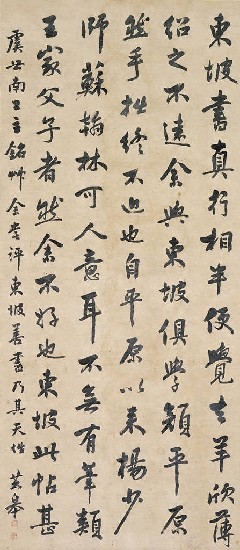 東坡書真行相半便覺去羊欣薄
紹之不遠余與東坡俱學顏平原
然手拙終不近也自平原以來楊少
師蘇翰林可人意耳不無有筆類
王家父子者然余不好也東坡此帖甚
虞世南公主銘艸余嘗評東坡善書乃其天